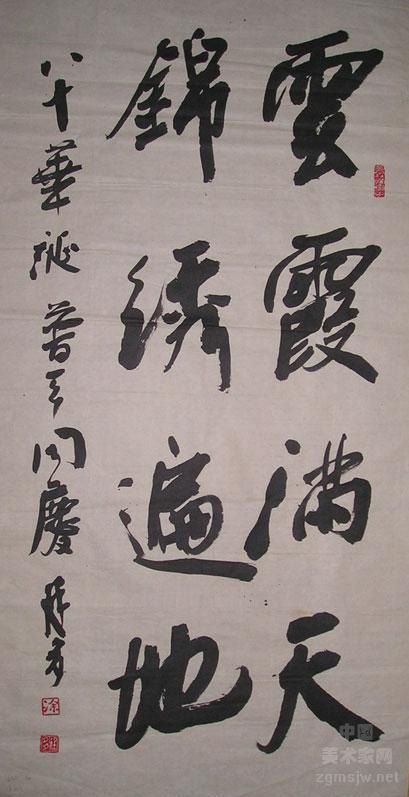 雲霞满天
錦绣遍地
八十華诞普天同慶
涂
中国
美术家网
zgmsjw.net